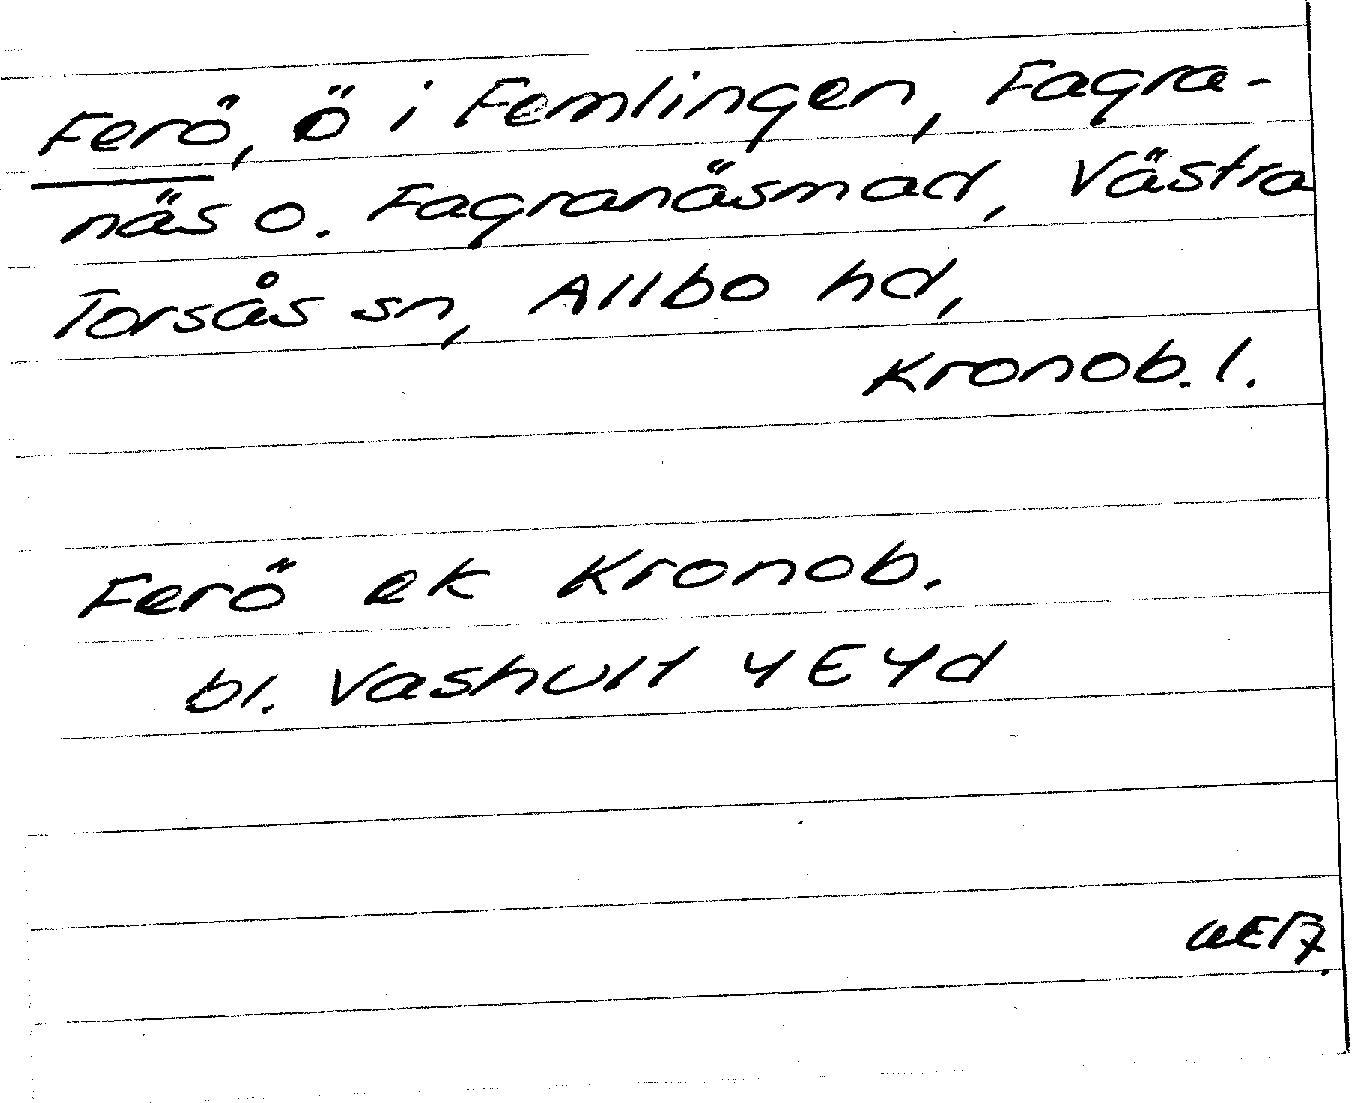 Ferö, ö i Femlingen, Fagra-
näs o. Fagranäsmad, Västra
Torsås sn, Allbo hd,
Kronob. l.
Ferö ek Kronob.
bl. Vashult 4E4d